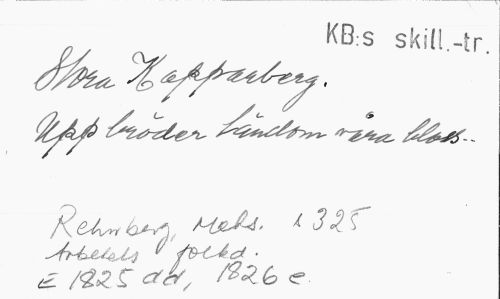 KB:s skill.-tr.
Stora Kopparberg.
Upp bröder tändom våra bloss..
Rehnberg, Mats. s 325
Arbetets folkd.
E 1825 dd, 1826 e.